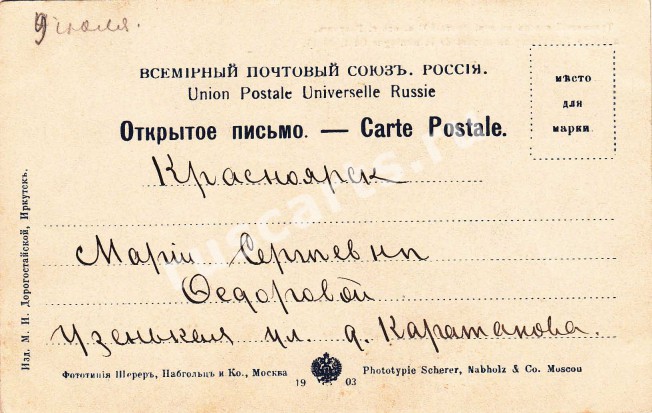 9 июля.
ВСЕМІРНЫЙ ПОЧТОВЫЙ СОЮЗЪ. РОССІЯ.
Union Postale Universelle Russie
Открытое письмо. — Carte Postale.
мѣсто
для
марки.
Красноярск
Маріи Сергѣевнѣ
Ѳедоровой
Узенькая ул. д. Каратанова.
Изд. М. И. Дорогостайской, Иркутскъ.
Фототипія Шереръ, Набгольцъ и Ко., Москва
1903
Phototypie Scherer, Nabholz & Co. Moscou
ruscarts.ru